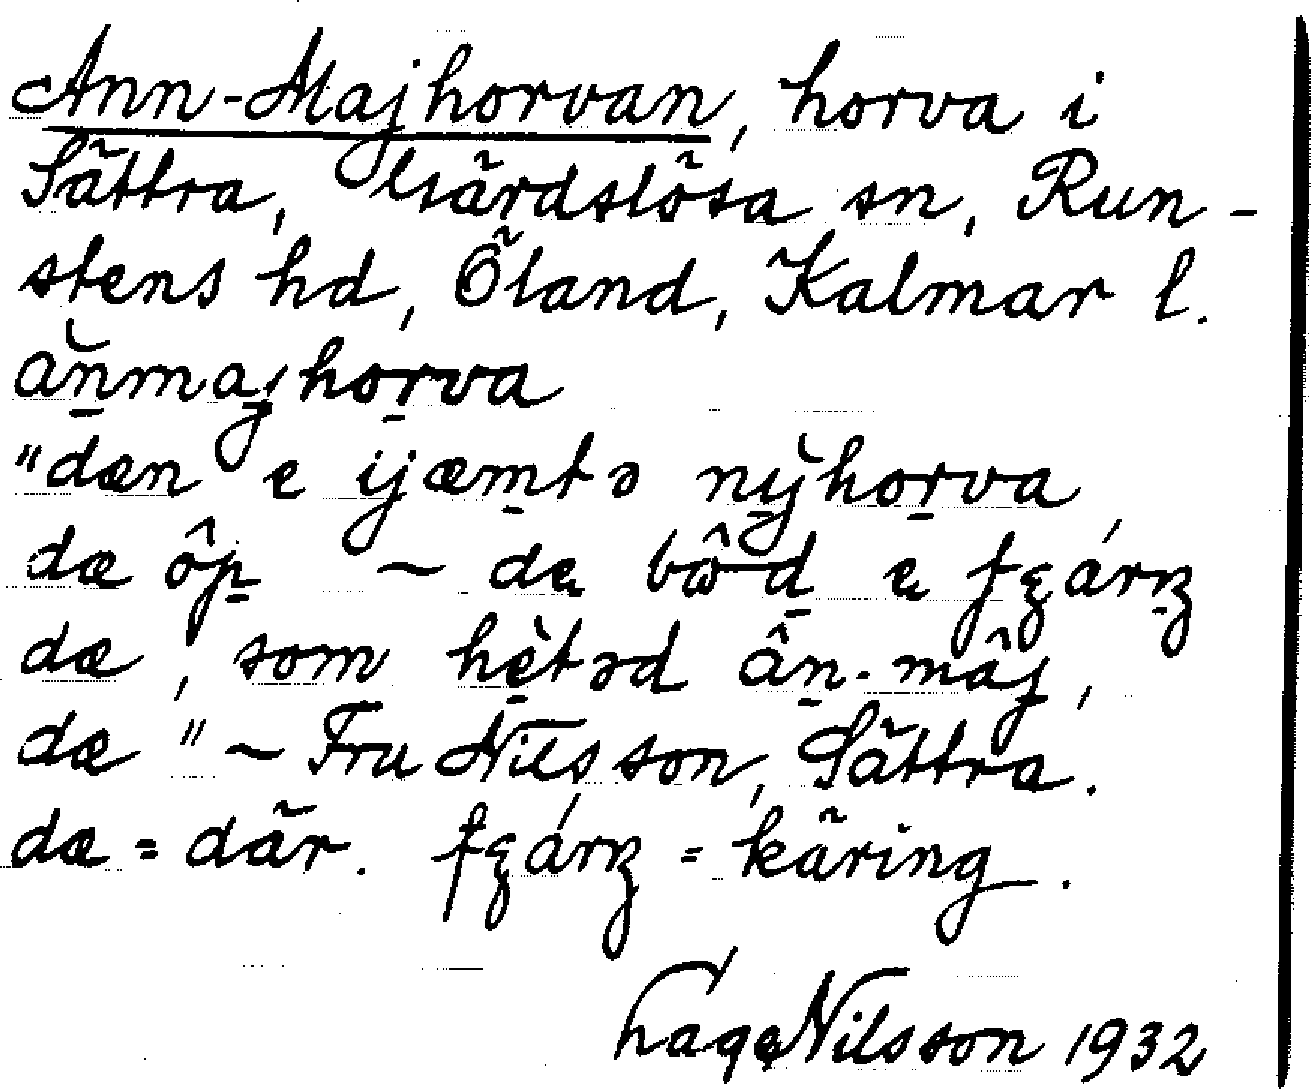 Ann-Majhorvan, horva i
Sättra, Gärdslösa sn, Run-
stens hd, Öland, Kalmar l.
àn̲maj̲hor̲va
"dæn e ijæm̲tə nỳ̲hor̲va
dæ ôp̲ ~ de bôd̲ e
dæ, som hè̲təd ân̲-mâj̲,
dæ" ~ Fru Nilsson, Sättra.
dæ = där. = käring.
Hage Nilsson 1932